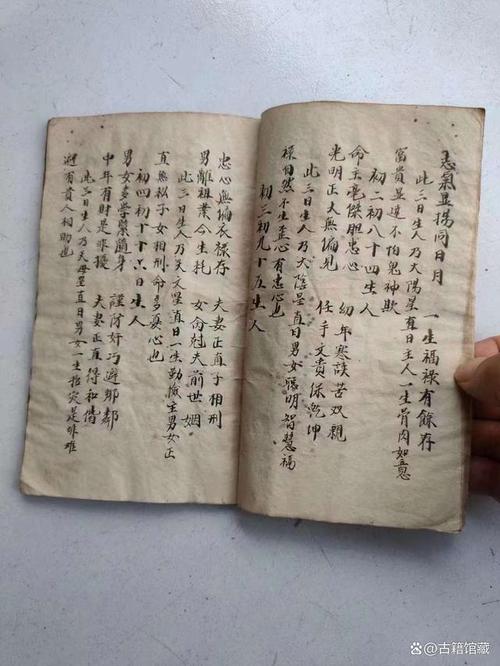 志氣显揚同日月 一生福禄有餘存
此三日生人乃太陽星直日主人一生骨肉如意
富貴显達不怕鬼神欺
初二初八十四生人
命主毫傑胆忠心 幼年寒苦双親
光明正大無偏見 任手文保乾坤
此三日生人乃大陰星直日男女聪明智慧福
禄自然不生歪心有忠心也
初三初九十五生人
忠心無偏衣禄存 夫妻正直子相刑
男離祖業合生耗 女命尅夫前世姻
此三日生人乃天文星直日一生勤儉主男女正
直無私子女相刑命多真心也
初四初十十六日生人
男女多學藝隨身 謹防奸巧避鄰
中年有財是非擾 夫妻正直得和偕
此三日生人乃天母星直日男女一生招灾是非难
避有貴人相助也
古籍馆藏